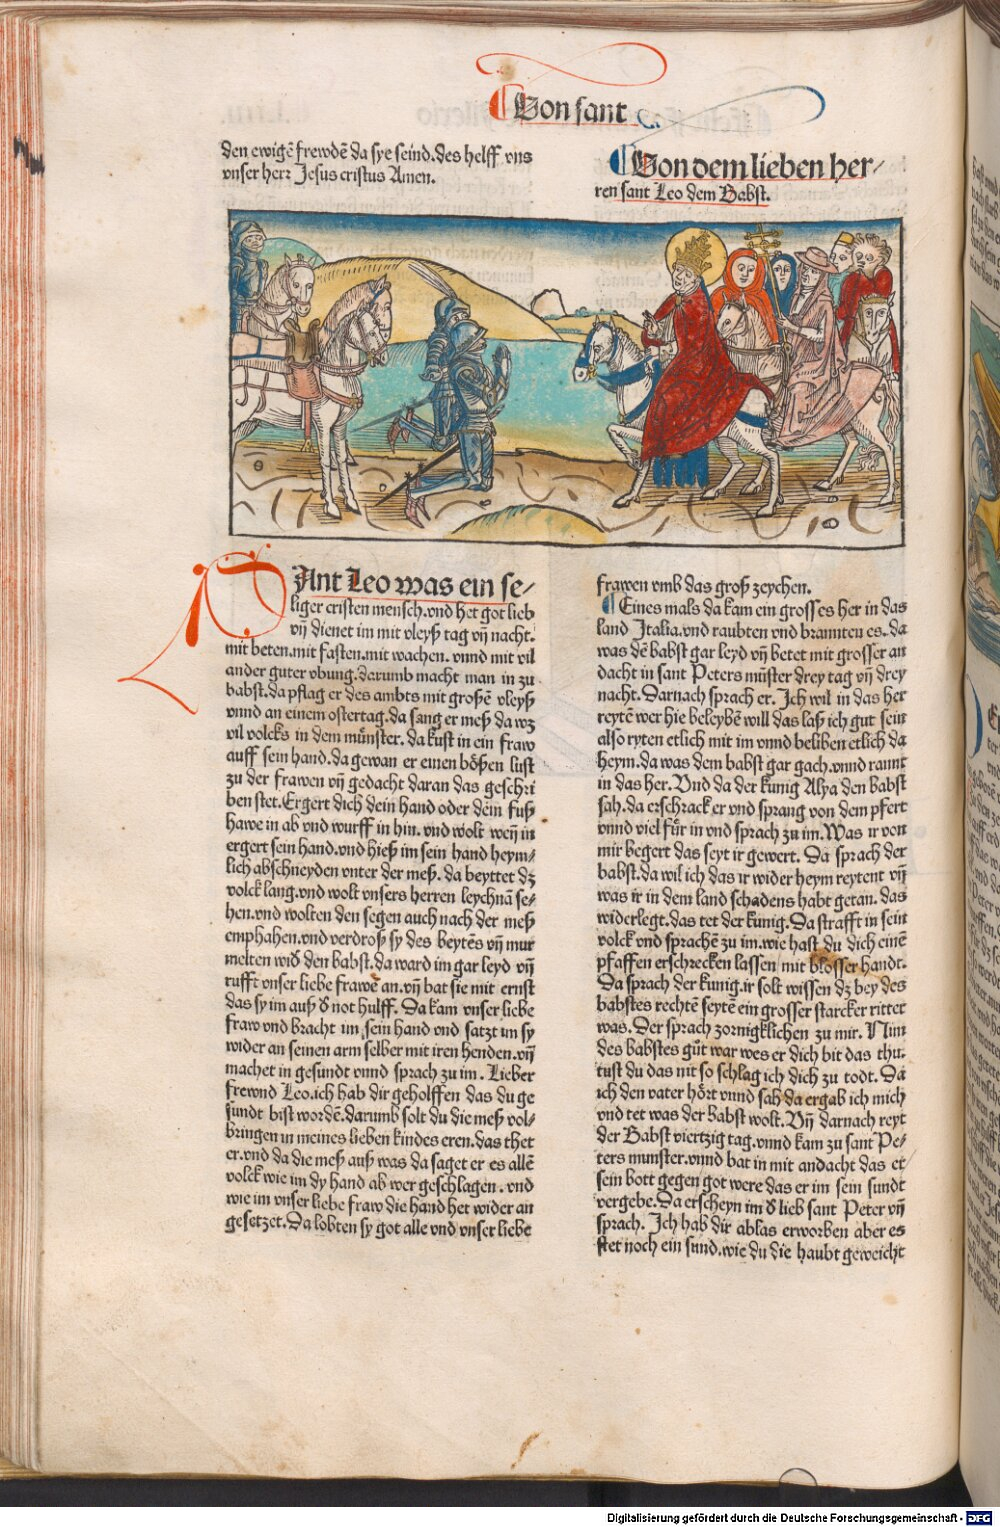 Von sant
den ewigē frewdē da sye seind.des helff vns
vnser herr Jesus cristus Amen.
Von dem lieben her⸗
ren sant Leo dem Babst.
SAnt Leo was ein se⸗
liger cristen mensch.vnd het got lieb
vn̄ dienet im mit vleyß tag vn̄ nacht.
mit beten.mit fasten.mit wachen. vnnd mit vil
ander guter vbung.darumb macht man in zu
babst.da pflag er des ambts mit großē vleyß
vnnd an einem ostertag.da sang er meß da wz
vil volcks in dem mu̇nster. da kust in ein fraw
auff sein hand.da gewan er einen bo̊ßen lust
zu der frawen vn̄ gedacht daran das geschri
ben stet.Ergert dich dein hand oder dein fuß
hawe in ab vnd wurff in hin. vnd wolt wen̄ in
ergert sein hand.vnd hieß im sein hand heym⸗
lich abschneyden vnter der meß. da beyttet dz
volck lang.vnd wolt vnsers herren leychnā se⸗
hen.vnd wolten den segen auch nach der meß
emphahen.vnd verdroß sy des beytēs vn̄ mur
melten wid̄ den babst.da ward im gar leyd vn̄
rufft vnser liebe frawē an.vn̄ bat sie mit ernst
das sy im auß d̄ not hulff. Da kam vnser liebe
fraw vnd bracht im sein hand vnd satzt im sy
wider an seinen arm selber mit iren henden.vn̄
machet in gesundt vnnd sprach zu im. Lieber
frewnd Leo.ich hab dir geholffen das du ge
sundt bist wordē.darumb solt du die meß vol⸗
bringen in meines lieben kindes eren.das thet
er.vnd da die meß auß was da saget er es allē
volck wie im dy hand ab wer geschlagen. vnd
wie im vnser liebe fraw die hand het wider an
gesetzet.Da lobten sy got alle vnd vnser liebe
frawen vmb das groß zeychen.
Eines mals da kam ein grosses her in das
land Italia.vnd raubten vnd branntten es. da
was dē babst gar leyd vn̄ betet mit grosser an
dacht in sant Peters mu̇nster drey tag vn̄ drey
nacht. Darnach sprach er. Ich wil in das her
reytē wer hie beleybē will das laß ich gut sein
also ryten etlich mit im vnnd beliben etlich da
heym.da was dem babst gar gach.vnnd rannt
in das her. Vnd da der kunig Alya den babst
sah.da erschrack er vnd sprang von dem pfert
vnnd viel fu̇r in vnd sprach zu im.Was ir von
mir begert das seyt ir gewert. Da sprach der
babst.da wil ich das ir wider heym reytent vn̄
was ir in dem land schadens habt getan. das
widerlegt.das tet der kunig.Da strafft in sein
volck vnd sprachē zu im.wie hast du dich einē
pfaffen erschrecken lassen mit blosser handt.
Da sprach der kunig.ir solt wissen dz bey des
babstes rechtē seytē ein grosser starcker ritter
was. Der sprach zornigklichen zu mir. Nim
des babstes gu̇t war wes er dich bit das thu.
tust du das nit so schlag ich dich zu todt. Da
ich den vater ho̊rt vnnd sah da ergab ich mich
vnd tet was der babst wolt. Vn̄ darnach reyt
der Babst viertzig tag.vnnd kam zu sant Pe⸗
ters munster.vnnd bat in mit andacht das er
sein bott gegen got were das er im sein sundt
vergebe.Da erscheyn im d̄ lieb sant Peter vn̄
sprach. Ich hab dir ablas erworben aber es
stet noch ein sund.wie du die haubt geweicht
Digitalisierung gefördert durch die Deutsche Forschungsgemeinschaft - DFG